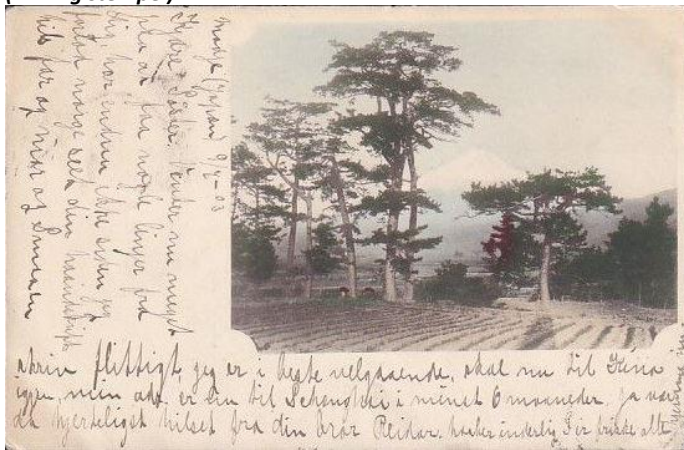 (Japan) 9/7-03
Kjære Søster. Venter nu meget
paa at faa nogle linjer fra
dig, har endnu ikke siden jeg
forlod norge seet din haandskrift
hils far og mor og
skriv flittigt, jeg er i beste velgaaende, skal nu til Kina
igjen, min adr. er til Schanghai i minst 6 maaneder. Ja vær
da hjerteligst hilset fra din bror Reidar. haaber inderlig I er friske alle